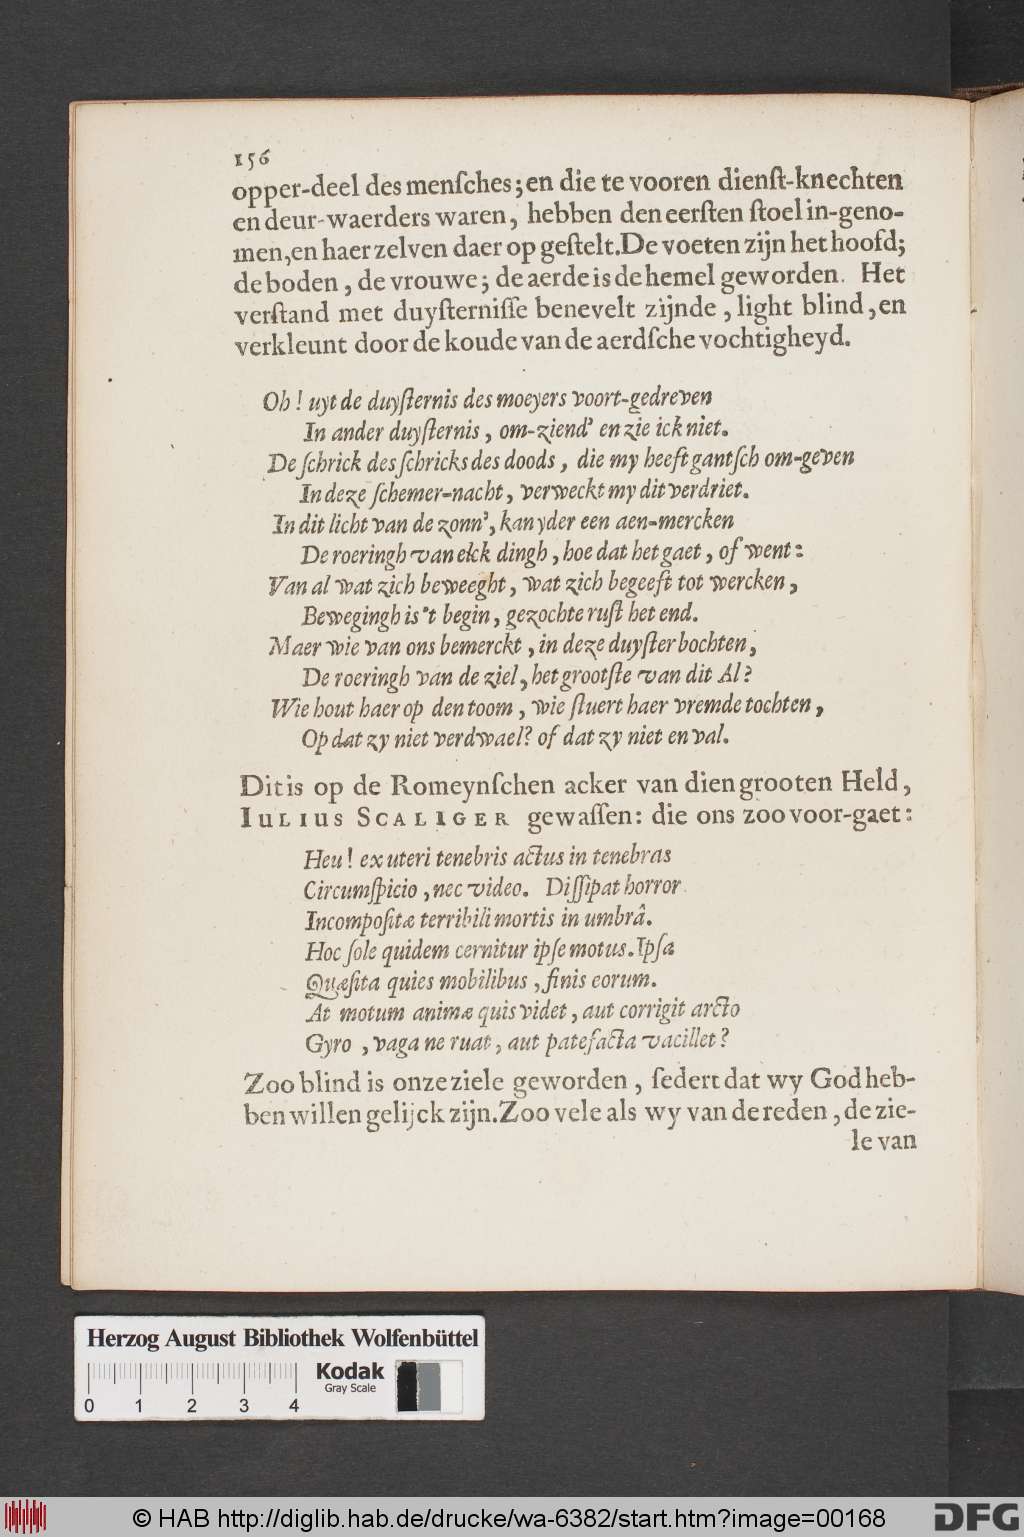 156
opper-deel des menſches; en die te vooren dienſt-knechten
en deur-waerders waren, hebben den eerſten ſtoel in-geno-
men, en haer zelven daer op geſtelt. De voeten zijn het hoofd;
de boden, de vrouwe; de aerde is de hemel geworden. Het
verſtand met duyſterniſſe benevelt zijnde, light blind, en
verkleunt door de koude van de aerdſche vochtigheyd.
Oh! uyt de duyſternis des moeyers voort-gedreven
In ander duyſternis, om-ziend' en zie ick niet.
De ſchrick des ſchricks des doods, die my heeft gantſch om-geven
In deze ſchemer-nacht, verweckt my dit verdriet.
In dit licht van de zonn', kan yder een aen-mercken
De roeringh van elck dingh, hoe dat het gaet, of went:
Van al wat zich beweeght, wat zich begeeft tot wercken,
Bewegingh is 't begin, gezochte ruſt het end.
Maer wie van ons bemerckt, in deze duyſter bochten,
De roeringh van de ziel, het grootſte van dit Al?
Wie hout haer op den toom, wie ſtuert haer vremde tochten,
Op dat zy niet verdwael? of dat zy niet en val.
Dit is op de Romeynſchen acker van dien grooten Held,
IULIUS SCALIGER gewaſſen: die ons zoo voor-gaet:
Heu! ex uteri tenebris actus in tenebras
Circumſpicio, nec video. Diſſipat horror
Incompoſitæ terribili mortis in umbrâ.
Hoc ſole quidem cernitur ipſe motus. Ipſa
Quæſita quies mobilibus, finis eorum.
At motum animæ quis videt, aut corrigit arcto
Gyro, vaga ne ruat, aut patefacta vacillet?
Zoo blind is onze ziele geworden, ſedert dat wy God heb-
ben willen gelijck zijn. Zoo vele als wy van de reden, de zie-
le van
Herzog August Bibliothek Wolfenbüttel
Kodak
Gray Scale
0 1 2 3 4
© HAB http://diglib.hab.de/drucke/wa-6382/start.htm?image=00168
DFG